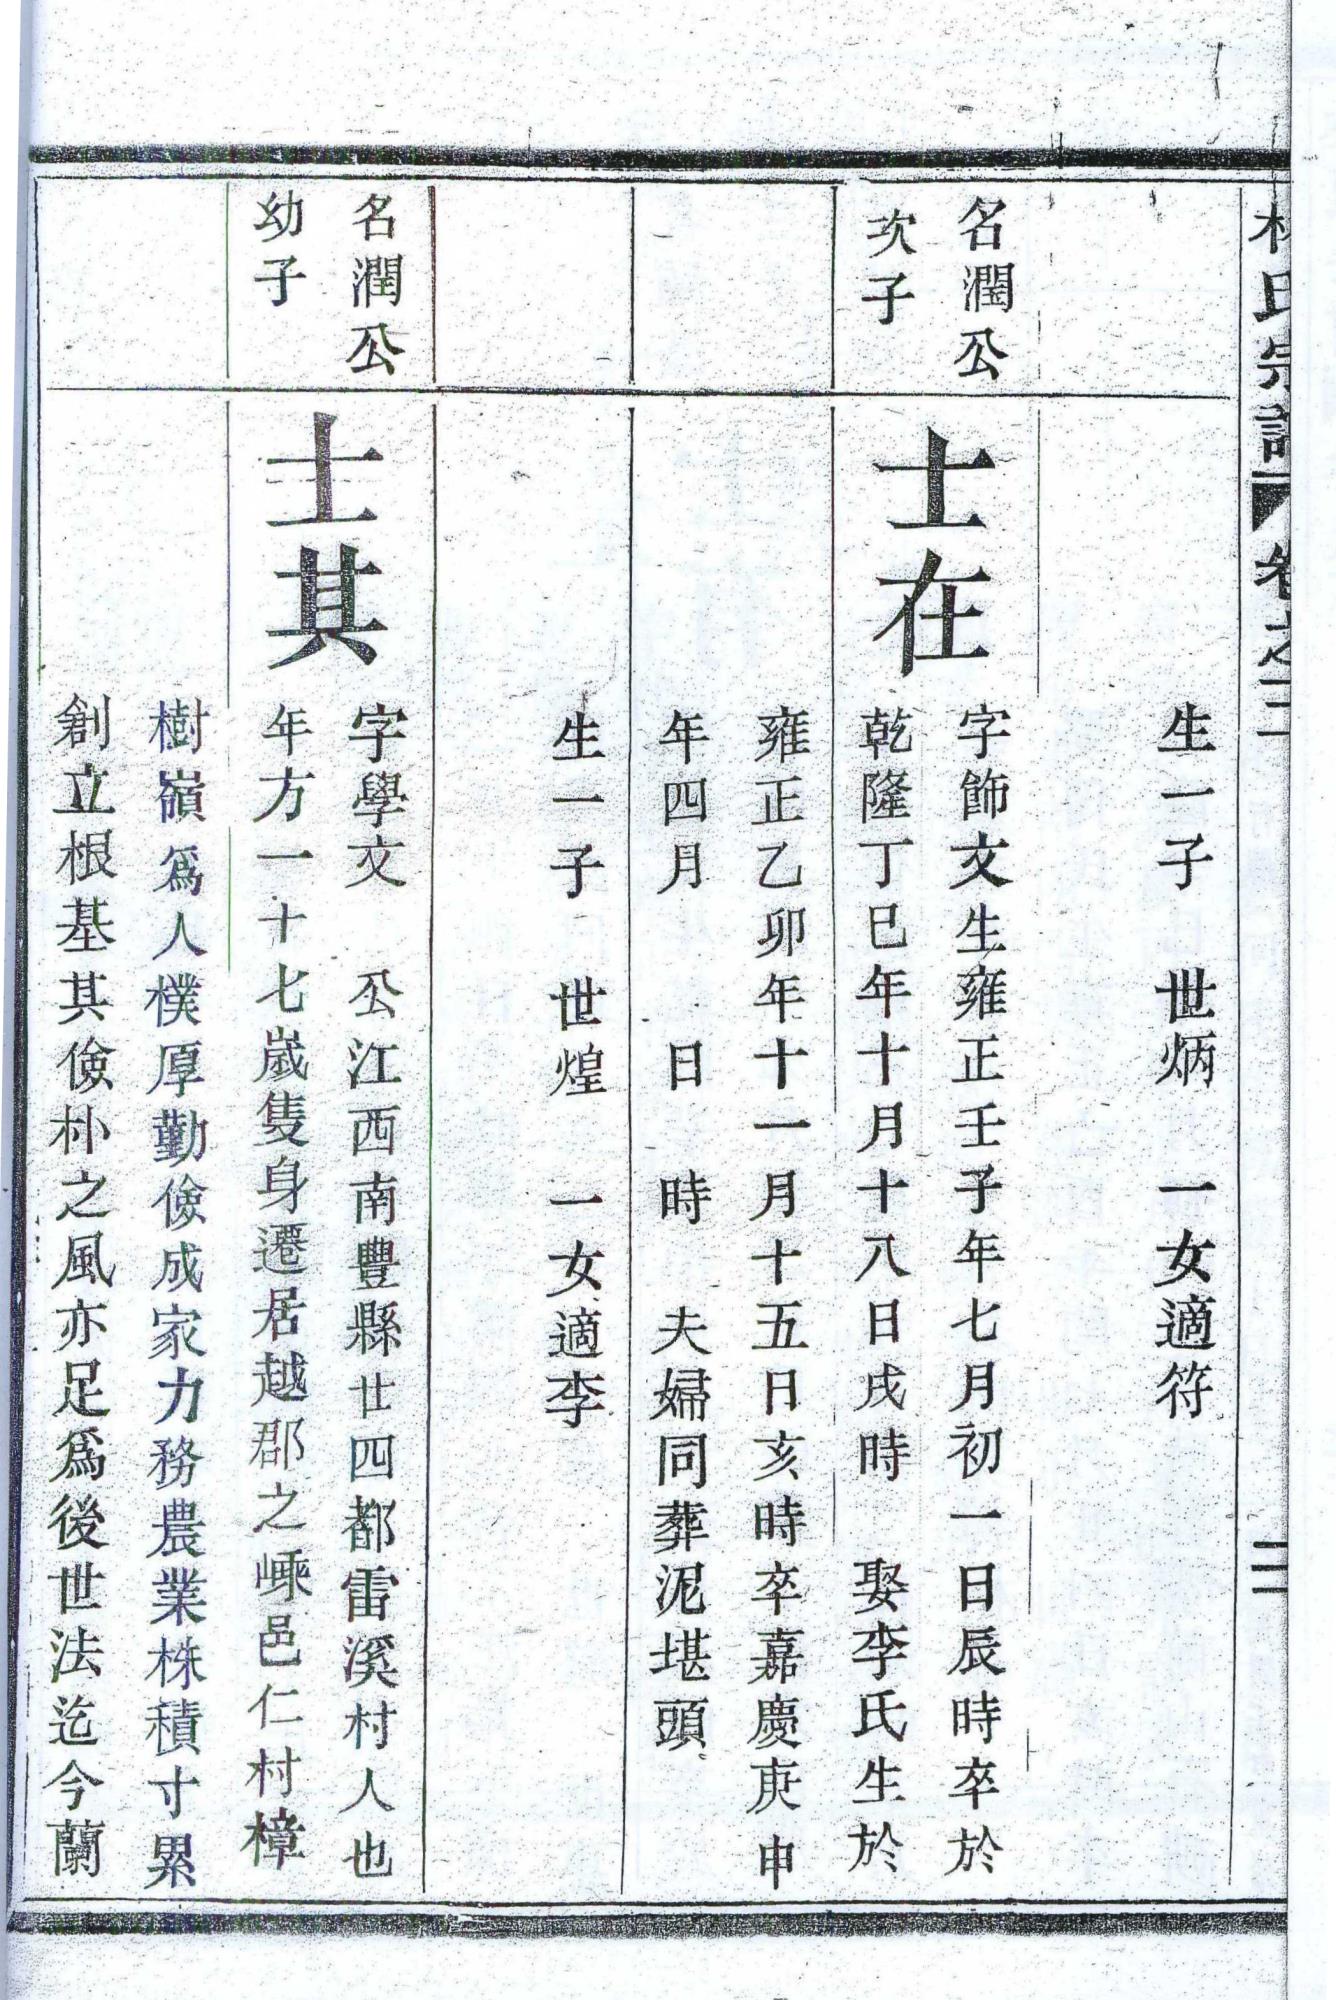 林氏宗譜 卷之二 二
生一子 世炳 一女適符
名潤公
次子
士在
字飾文生雍正壬子年七月初一日辰時卒於
乾隆丁巳年十月十八日戌時 娶李氏生於
雍正乙卯年十一月十五日亥時卒嘉慶庚申
年四月 日 時 夫婦同葬泥堪頭
生一子 世煌 一女適李
名潤公
幼子
士其
字學文 公江西南豐縣廿四都雷溪村人也
年方一十七嵗隻身遷居越郡之嵊邑仁村樟
樹嶺爲人樸厚勤儉成家力務農業株積寸累
創立根基其儉朴之風亦足爲後世法迄今蘭